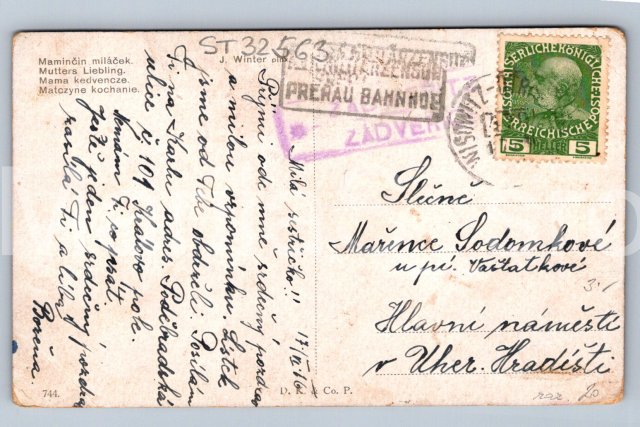 Maminčin miláček.
Mutters Liebling.
Mama kedvencze.
Matczyne kochanie.
J. Winter pinx.
ST 32563
PRERAU BAHNHOF
ZÁDVEŘ
KAISERLICHEKÖNIGLICHE
ÖSTERREICHISCHE
5 HELLER 5
Milá sestřičko!! 17/IV 16
Přijmi ode mne srdečný pozdrav
a milou vzpomínku. Lístek
jsme od Tebe obdrželi. Posílám
Ti na Karla adres. Poděbradská
ulice č. 109 Královo pole.
Nemám Ti co psát.
Ještě jeden srdečný pozdrav
Ti a líbá
Božena.
Slečně
Mařence Sodomkové
u pí. Vaštatkové
Hlavní náměstí
v Uher. Hradišti
744.
D. K. & Co. P.